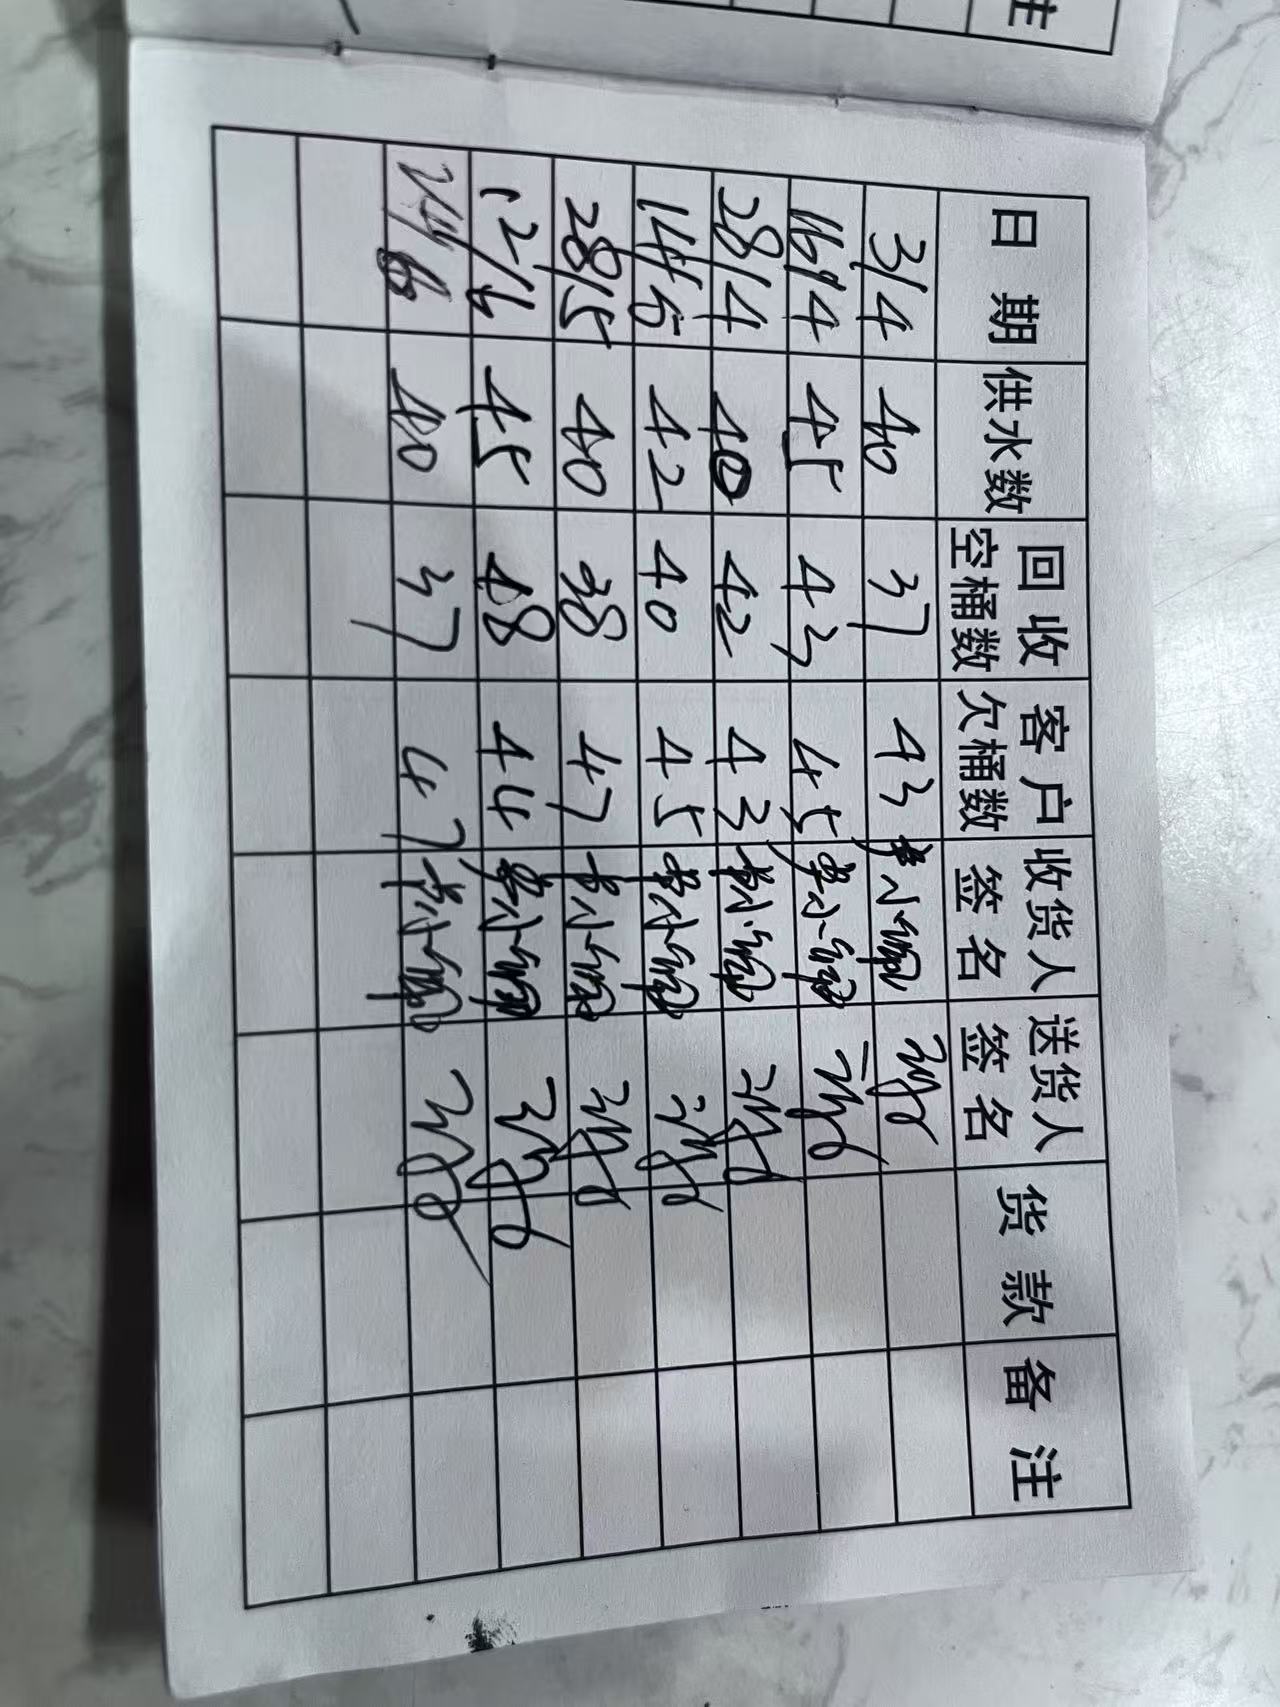 注
日期 供水数 回收空桶数 客户欠桶数 收货人签名 送货人签名 货款 备注
3/4 40 37 43
16/4 45 43 45
28/4 40 42 43
14/5 42 40 45
28/5 40 38 47
12/6 45 48 44
24/6 40 37 47